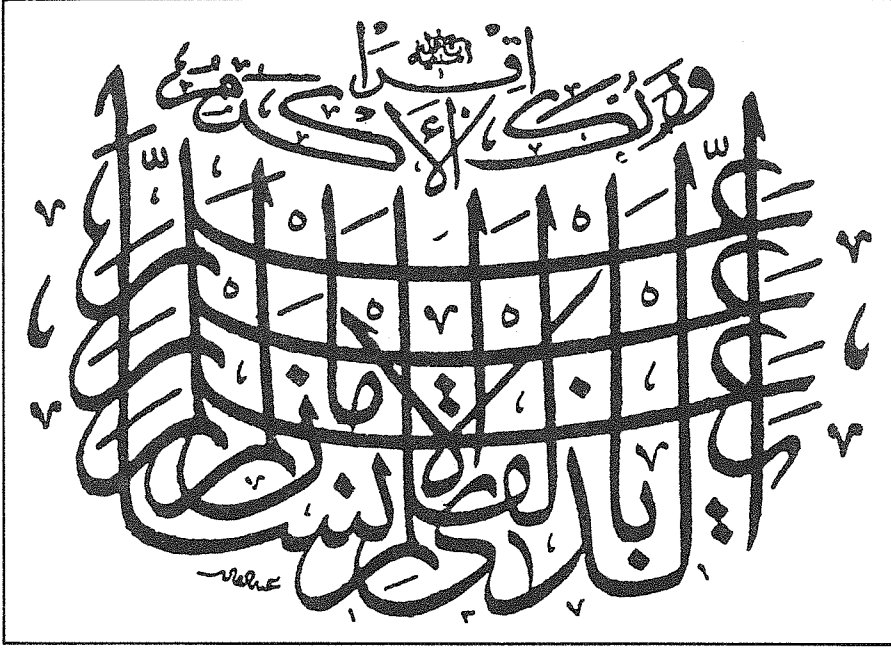 اقرأ
وربك الأكرم
الذي علم بالقلم
علم الإنسان ما لم يعلم